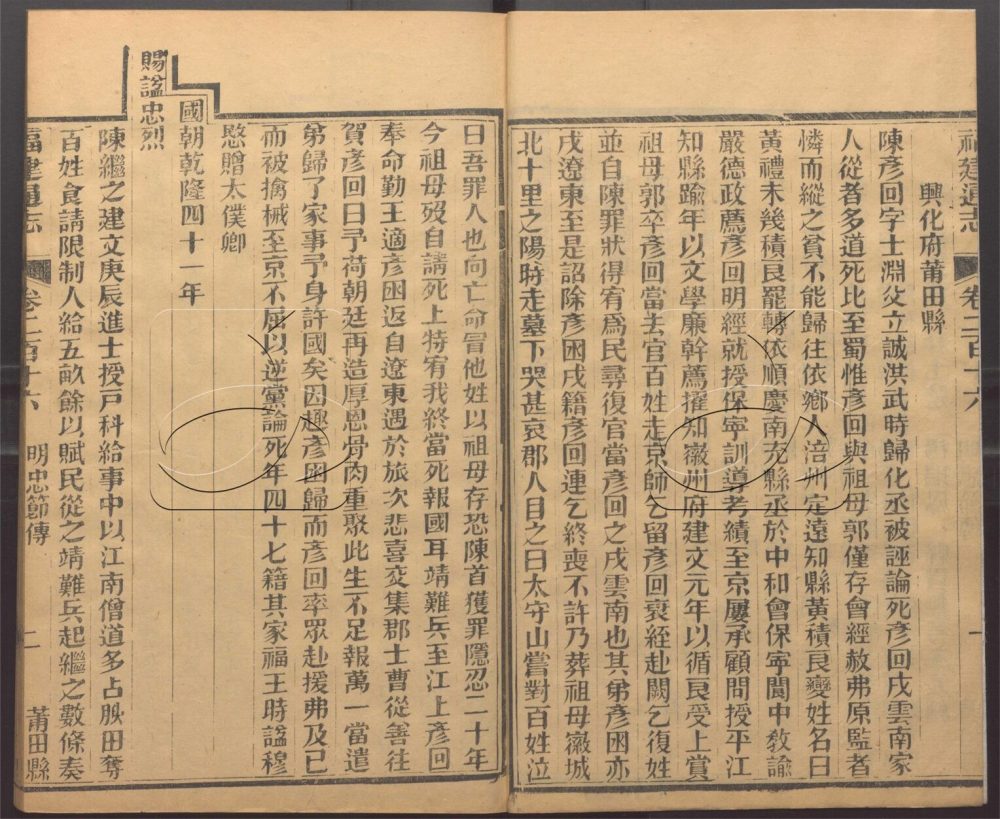 福建通志 卷二百十六 一
興化府莆田縣
陳彥回字士淵父立誠洪武時歸化丞被誣論死彥回戍雲南家
人從者多道死比至蜀惟彥回與祖母郭僅存會經赦弗原監者
憐而縱之貧不能歸往依鄉人涪州定遠知縣黃積良變姓名曰
黃禮未幾積良罷轉依順慶南充縣丞於中和會保寧閬中敎諭
嚴德政薦彥回明經就授保寧訓導考績至京屢承顧問授平江
知縣踰年以文學廉幹薦擢知徽州府建文元年以循良受上賞
祖母郭卒彥回當去官百姓走京師乞留彥回衰絰赴闕乞復姓
並自陳罪狀得宥爲民尋復官當彥回之戍雲南也其弟彥囦亦
戍遼東至是詔除彥囦戍籍彥回連乞終喪不許乃葬祖母徽城
北十里之陽時走墓下哭甚哀郡人目之曰太守山嘗對百姓泣
曰吾罪人也向亡命冒他姓以祖母存恐陳首獲罪隱忍二十年
今祖母歿自請死上特宥我終當死報國耳靖難兵至江上彥回
奉命勤王適彥囦返自遼東遇於旅次悲喜交集郡士曹從善往
賀彥回曰予荷朝廷再造厚恩骨肉重聚此生不足報萬一當遣
弟歸了家事予身許國矣因趣彥囦歸而彥回率眾赴援弗及已
而被擒械至京不屈以逆黨論死年四十七籍其家福王時諡穆
愍贈太僕卿
國朝乾隆四十一年
賜諡忠烈
陳繼之建文庚辰進士授戸科給事中以江南僧道多占腴田奪
百姓食請限制人給五畝餘以賦民從之靖難兵起繼之數條奏
福建通志 卷二百十六 明忠節傳 二 莆田縣